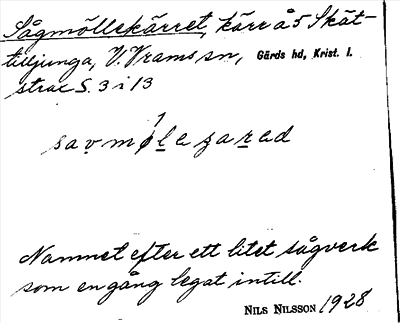 Sågmöllekärret, kärr å 5 Skät-
tilljunga, V. Vrams sn, Gärds hd, Krist. l.
strax S. 3 i 13
Namnet efter ett litet sågverk
som en gång legat intill.
NILS NILSSON 1928